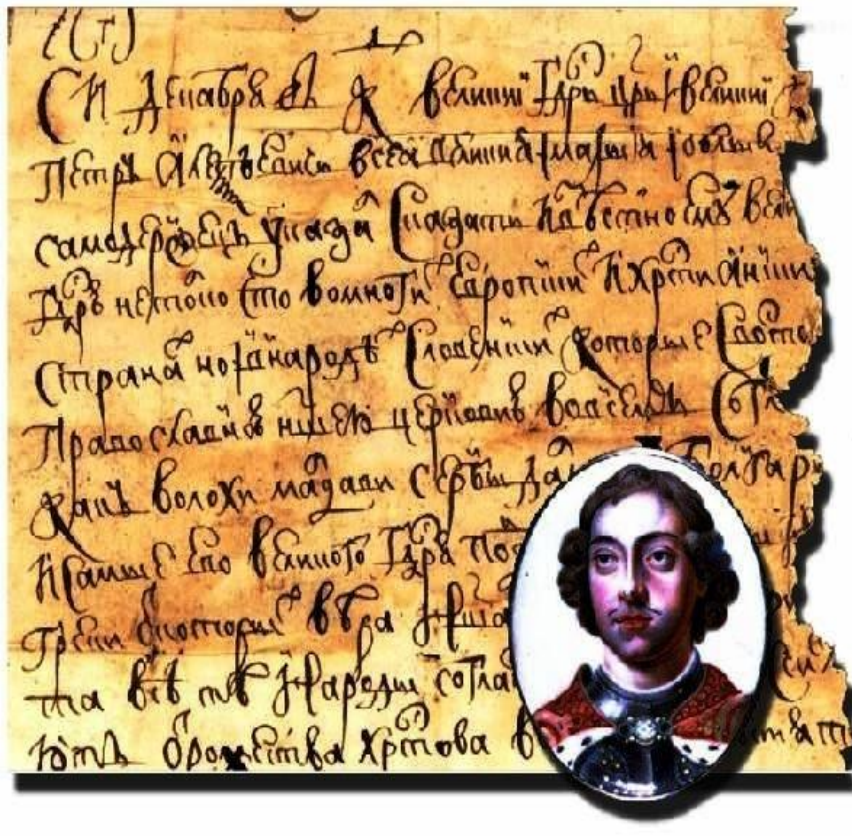 СИ декабря въ К великиі гдрь црь і великиі
Петръ Алеѯѣевичь всеа великиа і малыа і белыа
самодержецъ указа сказати извѣстно ему вели
гдрю не толко что во многи европски и хрстиански
страна но і в народѣ словенски которые с восто
православною ншею церковию во всемъ согла
какъ волохи мадави сербы дал болгары
и самые его великого гдря по
греки о которы вѣра нша
та всѣ тѣ народы согла
ютъ о рождества хрстова в